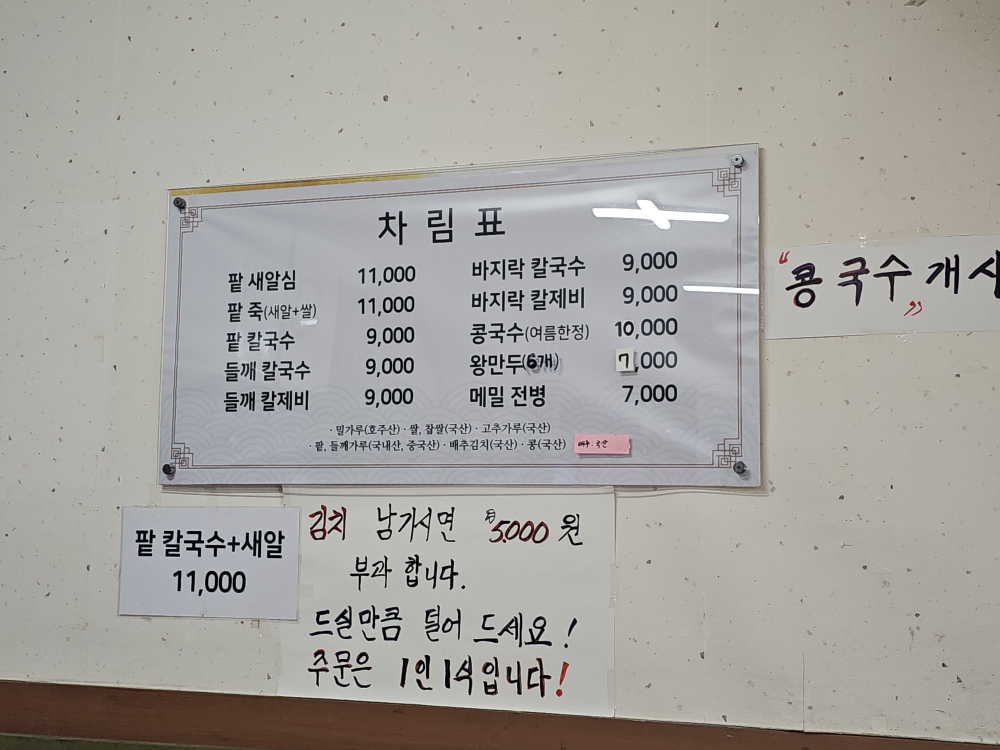 차림표
팥 새알심 11,000
팥 죽(새알+쌀) 11,000
팥 칼국수 9,000
들깨 칼국수 9,000
들깨 칼제비 9,000
바지락 칼국수 9,000
바지락 칼제비 9,000
콩국수(여름한정) 10,000
왕만두(6개) 7,000
메밀 전병 7,000
· 밀가루(호주산) · 쌀, 찹쌀(국산) · 고추가루(국산)
· 팥, 들깨가루(국내산, 중국산) · 배추김치(국산) · 콩(국산)
"콩국수" 개시
팥 칼국수+새알
11,000
김치 남기시면 5,000원
부과 합니다.
드실만큼 덜어 드세요!
주문은 1인 1식입니다!